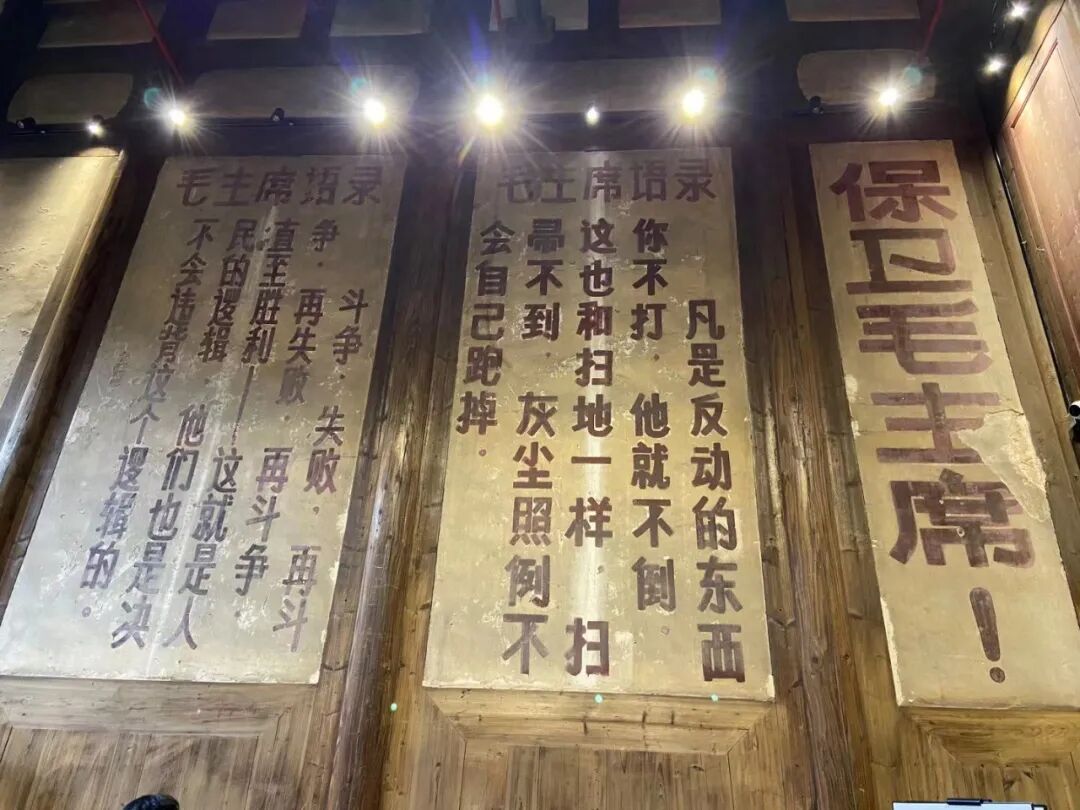 保卫毛主席！
毛主席语录
凡是反动的东西
你不打，他就不倒，
这也和扫地一样，扫
帚不到，灰尘照例不
会自己跑掉。
毛主席语录
斗争，失败，再斗
争，再失败，再斗争
直至胜利——这就是人
民的逻辑，他们也是决
不会违背这个逻辑的。